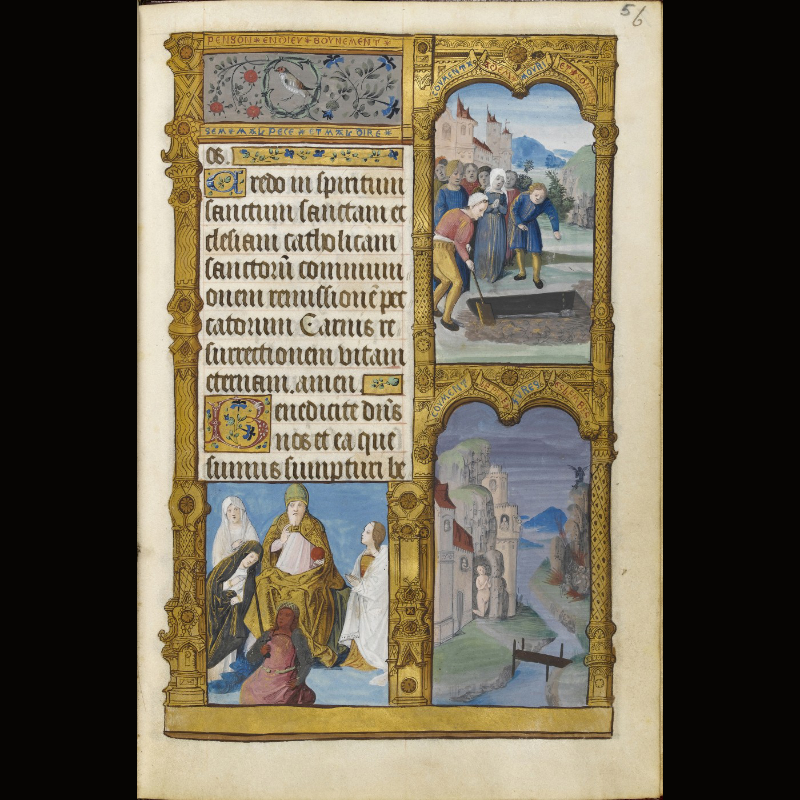 56
PENSON * EN DIEV * BOVNEMENT *
os.
Credo in spiritum
sanctum sanctam et
clesiam catholicam
sanctorū commum
onem remissionē pec
catorum Carnis re
surrectionem vitam
eternam. amen.
Benedicite dn̄s
nos et ea que
sumus sumpturi be